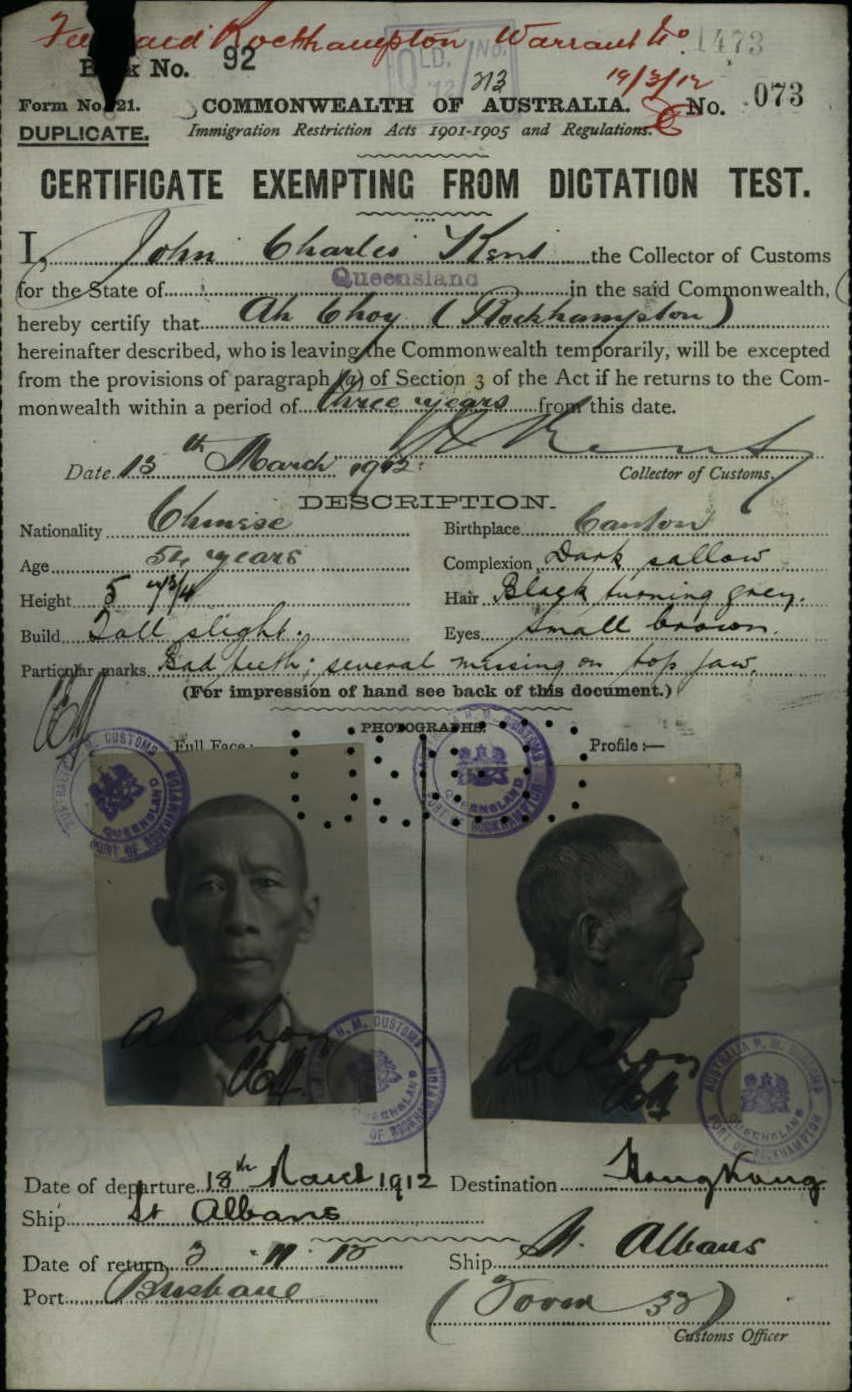 Fee paid Rockhampton Warrant No. 1473
Book No. 92
QLD.
213
19/3/12
Form No. 21.
COMMONWEALTH OF AUSTRALIA.
No. 073
DUPLICATE.
Immigration Restriction Acts 1901-1905 and Regulations.
CERTIFICATE EXEMPTING FROM DICTATION TEST.
I, John Charles Kent the Collector of Customs
for the State of Queensland in the said Commonwealth,
hereby certify that Ah Choy (Rockhampton)
hereinafter described, who is leaving the Commonwealth temporarily, will be excepted
from the provisions of paragraph (a) of Section 3 of the Act if he returns to the Com-
monwealth within a period of three years from this date.
Kent
Date 13th March 1912.
Collector of Customs.
DESCRIPTION.
Nationality Chinese
Birthplace Canton
Age 54 years
Complexion Dark sallow
Height 5
Hair Black turning grey.
Build Tall slight.
Eyes small brown.
Particular marks Bad teeth; several missing on top jaw.
(For impression of hand see back of this document.)
PHOTOGRAPHS.
Full Face:
Profile :—
H. M. CUSTOMS
QUEENSLAND
PORT OF ROCKHAMPTON
H. M. CUSTOMS
QUEENSLAND
PORT OF ROCKHAMPTON
Ah Choy
Ah Choy
H. M. CUSTOMS
QUEENSLAND
OF ROCKHAMPTON
AUSTRALIA H. M. CUSTOMS
QUEENSLAND
PORT OF ROCKHAMPTON
Date of departure 18th March 1912
Destination Hong Kong
Ship St Albans
Date of return
Ship St. Albans
Port Brisbane
(Form 32)
Customs Officer